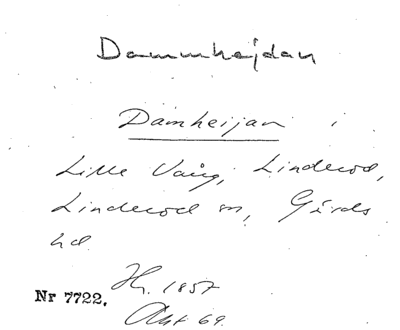 Dammhejdan
Damheijan i
Lille Vång, Linderöd,
Linderöd sn, Gärds
hd.
Hr. 1857
Nr 7722. Akt 69.